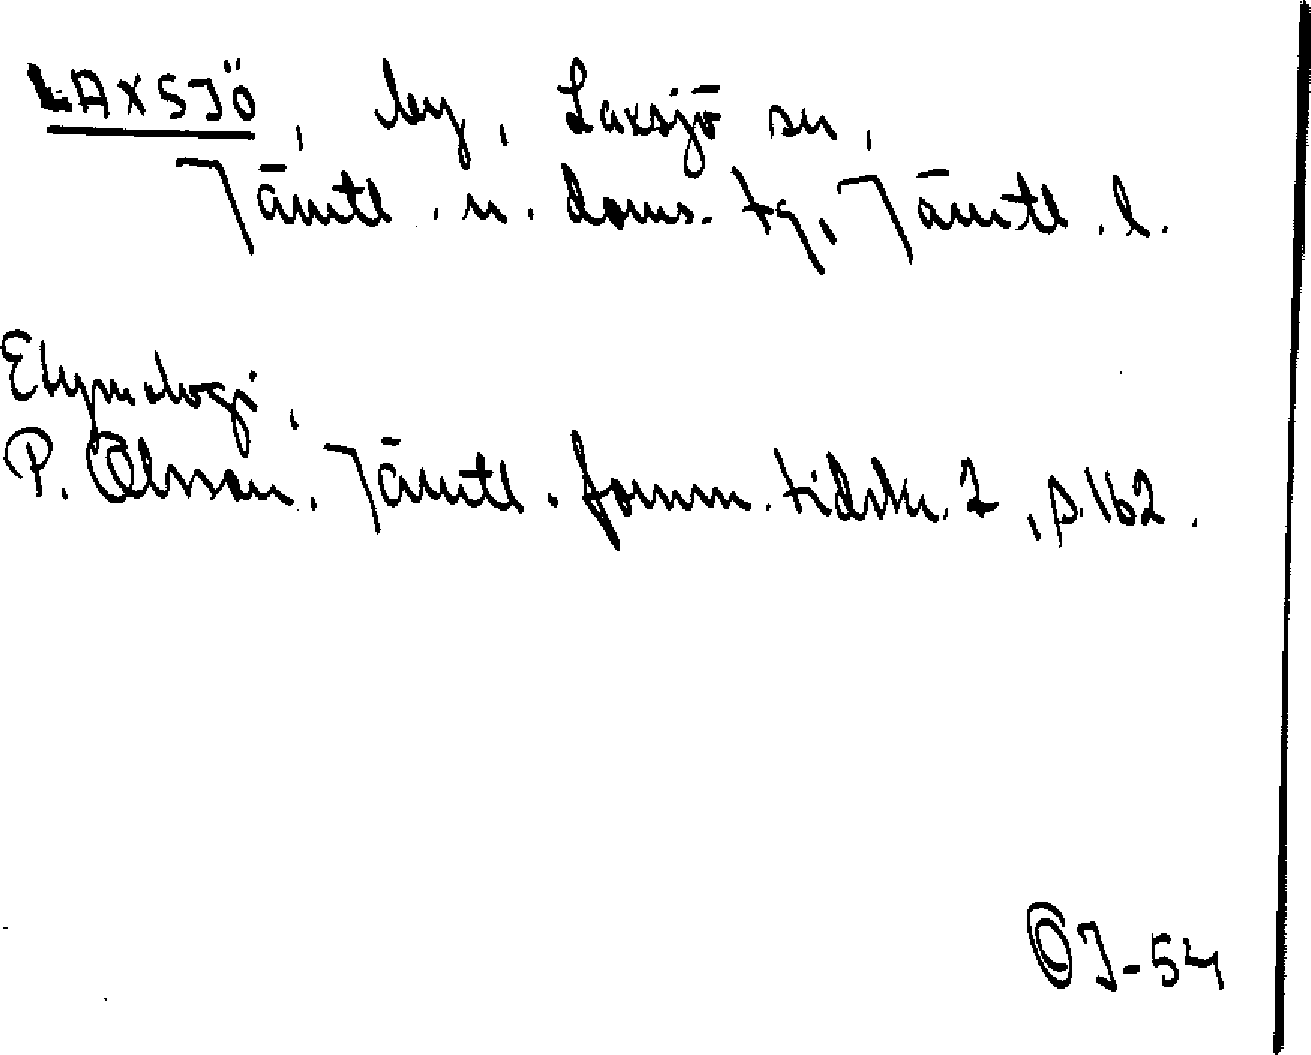 LAXSJÖ, by, Laxsjö sn,
Jämtl. n. doms. tg, Jämtl. l.
Etymologi,
P. Olsson, Jämtl. fornm. tidskr. 2, s. 162.
OJ-54